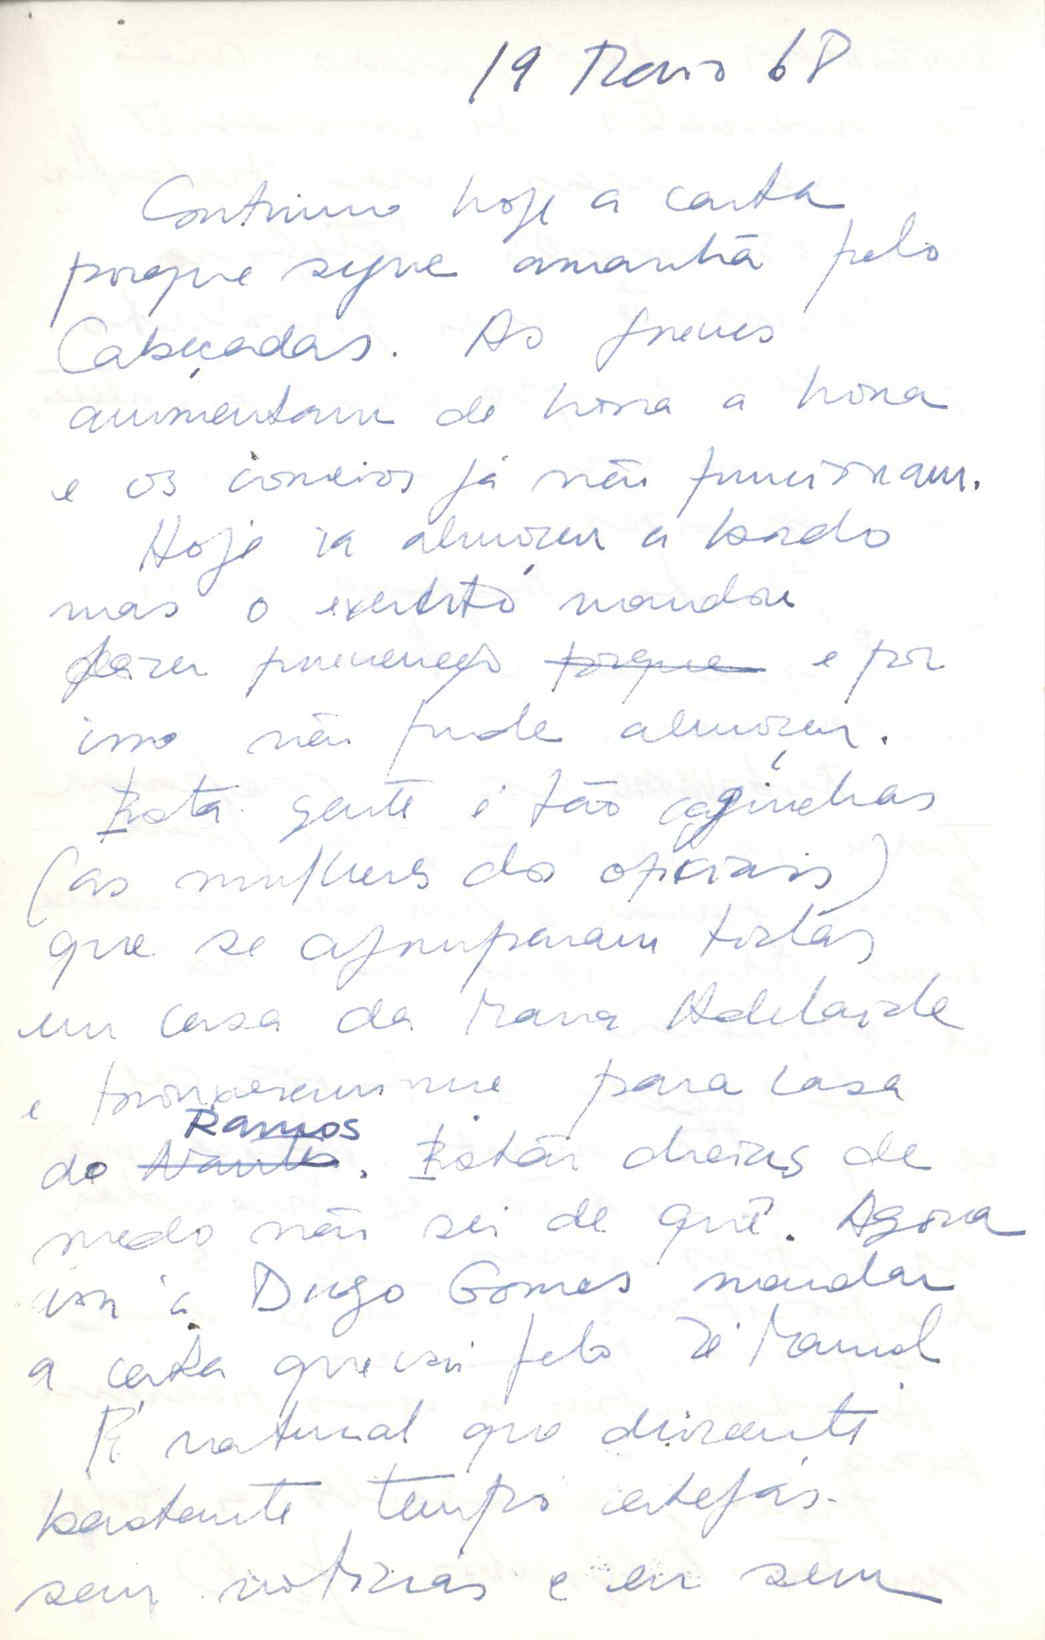 19 Maio 68
Continuo hoje a carta
porque segue amanhã pelo
Cabeçadas. As greves
aumentam de hora a hora
e os correios já não funcionam.
Hoje ia almoçar a bordo
mas o exercito mandou
fazer prevenção porque e por
isso não pude almoçar.
Esta gente é tão caguinchas
(as mulheres dos oficiais)
que se agruparam todas
em casa da Maria Adelaide
e trouxeram-me para casa
do Ramos. Estão cheias de
medo não sei de quê. Agora
vou à Diogo Gomes mandar
a carta que vai pelo Zé Manel
É natural que durante
bastante tempo estejas
sem noticias e eu sem